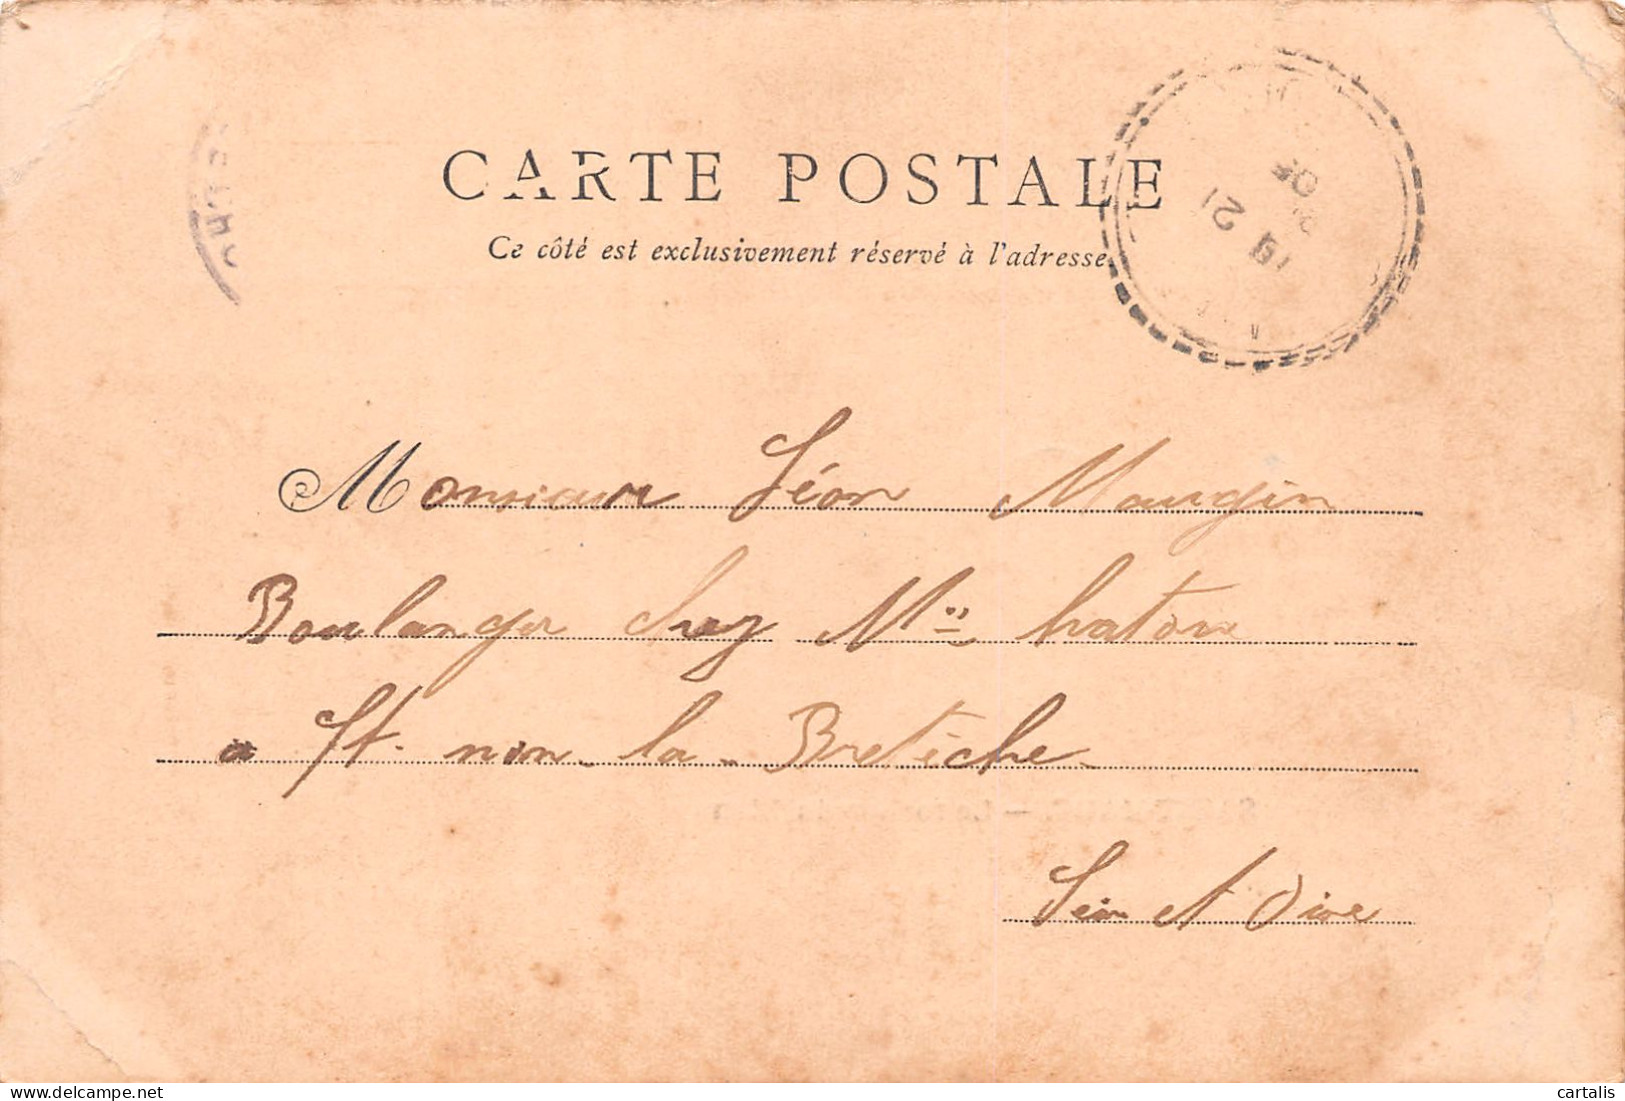 CARTE POSTALE
Ce côté est exclusivement réservé à l'adresse
21
05
Monsieur Léon Maugin
Boulanger chez Mr hraton
a St. non-la-Bretèche.
Sein et Oise
cartalis